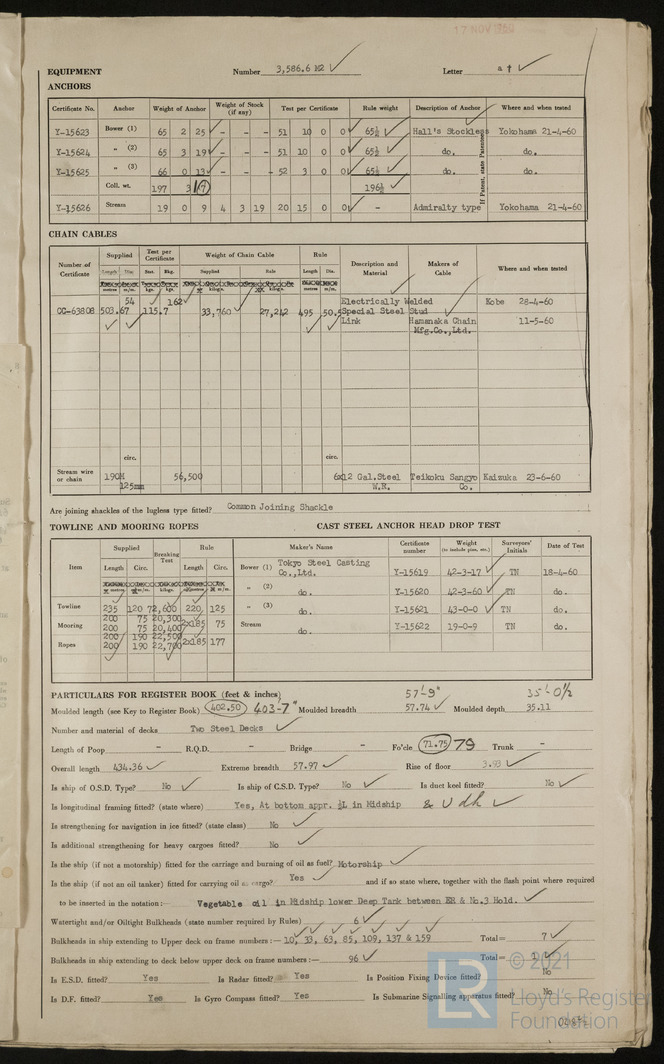 17 NOV 1960
EQUIPMENT Number 3,586.6 M2 Letter a†
ANCHORS
Certificate No. Anchor Weight of Anchor Weight of Stock (if any) Test per Certificate Rule weight Description of Anchor If Patent, state Patentee Where and when tested
Y-15623 Bower (1) 65 2 25 - - - 51 10 0 0 65½ Hall's Stockless Yokohama 21-4-60
Y-15624 " (2) 65 3 19 - - - 51 10 0 0 65½ do. do.
Y-15625 " (3) 66 0 13 - - - 52 3 0 0 65½ do. do.
Coll. wt. 197 3 1 196½
Y-15626 Stream 19 0 9 4 3 19 20 15 0 0 - Admiralty type Yokohama 21-4-60
CHAIN CABLES
Number of Certificate Supplied Test per Certificate Weight of Chain Cable Rule Description and Material Makers of Cable Where and when tested
Length Dia. Stat. Bkg. Supplied Rule Length Dia.
metres m/m. kgs. kilogs. kilogs. metres m/m.
54 162 Electrically Welded Kobe 28-4-60
OC-63808 503.67 115.7 33,760 27,242 495 50.5 Special Steel Stud
Link Hamanaka Chain 11-5-60
Mfg.Co.,Ltd.
circ. circ.
Stream wire or chain 190M 56,500 6x12 Gal.Steel Teikoku Sangyo Kaizuka 23-6-60
125mm W.R. Co.
Are joining shackles of the lugless type fitted? Common Joining Shackle
TOWLINE AND MOORING ROPES CAST STEEL ANCHOR HEAD DROP TEST
Item Supplied Breaking Test Rule Maker's Name Certificate number Weight (to include pins, etc.) Surveyors' Initials Date of Test
Length Circ. Length Circ. Bower (1) Tokyo Steel Casting Co.,Ltd. Y-15619 42-3-17 TN 18-4-60
metres m/m. kilogs.
" (2) do. Y-15620 42-3-60 TN do.
Towline 235 120 72,600 220 125 " (3) do. Y-15621 43-0-0 TN do.
200 75 20,300
Mooring 200 75 20,400 2x185 75 Stream do. Y-15622 19-0-9 TN do.
200 190 22,500
Ropes 200 190 22,700 2x185 177
PARTICULARS FOR REGISTER BOOK (feet & inches) 57'-9" 35'-0½
Moulded length (see Key to Register Book) 402.50 403-7" Moulded breadth 57.74 Moulded depth 35.11
Number and material of decks Two Steel Decks
Length of Poop - R.Q.D. - Bridge - Fo'cle 71.75 79 Trunk -
Overall length 434.36 Extreme breadth 57.97 Rise of floor 3.93
Is ship of O.S.D. Type? No Is ship of C.S.D. Type? No Is duct keel fitted? No
Is longitudinal framing fitted? (state where) Yes, At bottom appr. ½L in Midship & U dk
Is strengthening for navigation in ice fitted? (state class) No
Is additional strengthening for heavy cargoes fitted? No
Is the ship (if not a motorship) fitted for the carriage and burning of oil as fuel? Motorship
Is the ship (if not an oil tanker) fitted for carrying oil as cargo? Yes and if so state where, together with the flash point where required
to be inserted in the notation:- Vegetable oil in Midship lower Deep Tank between ER & No.3 Hold.
Watertight and/or Oiltight Bulkheads (state number required by Rules) 6
Bulkheads in ship extending to Upper deck on frame numbers:- 10, 33, 63, 85, 109, 137 & 159 Total= 7
Bulkheads in ship extending to deck below upper deck on frame numbers:- 96 Total= 1
Is E.S.D. fitted? Yes Is Radar fitted? Yes Is Position Fixing Device fitted? No
Is D.F. fitted? Yes Is Gyro Compass fitted? Yes Is Submarine Signalling apparatus fitted? No
© 2021
LR Lloyd's Register
Foundation